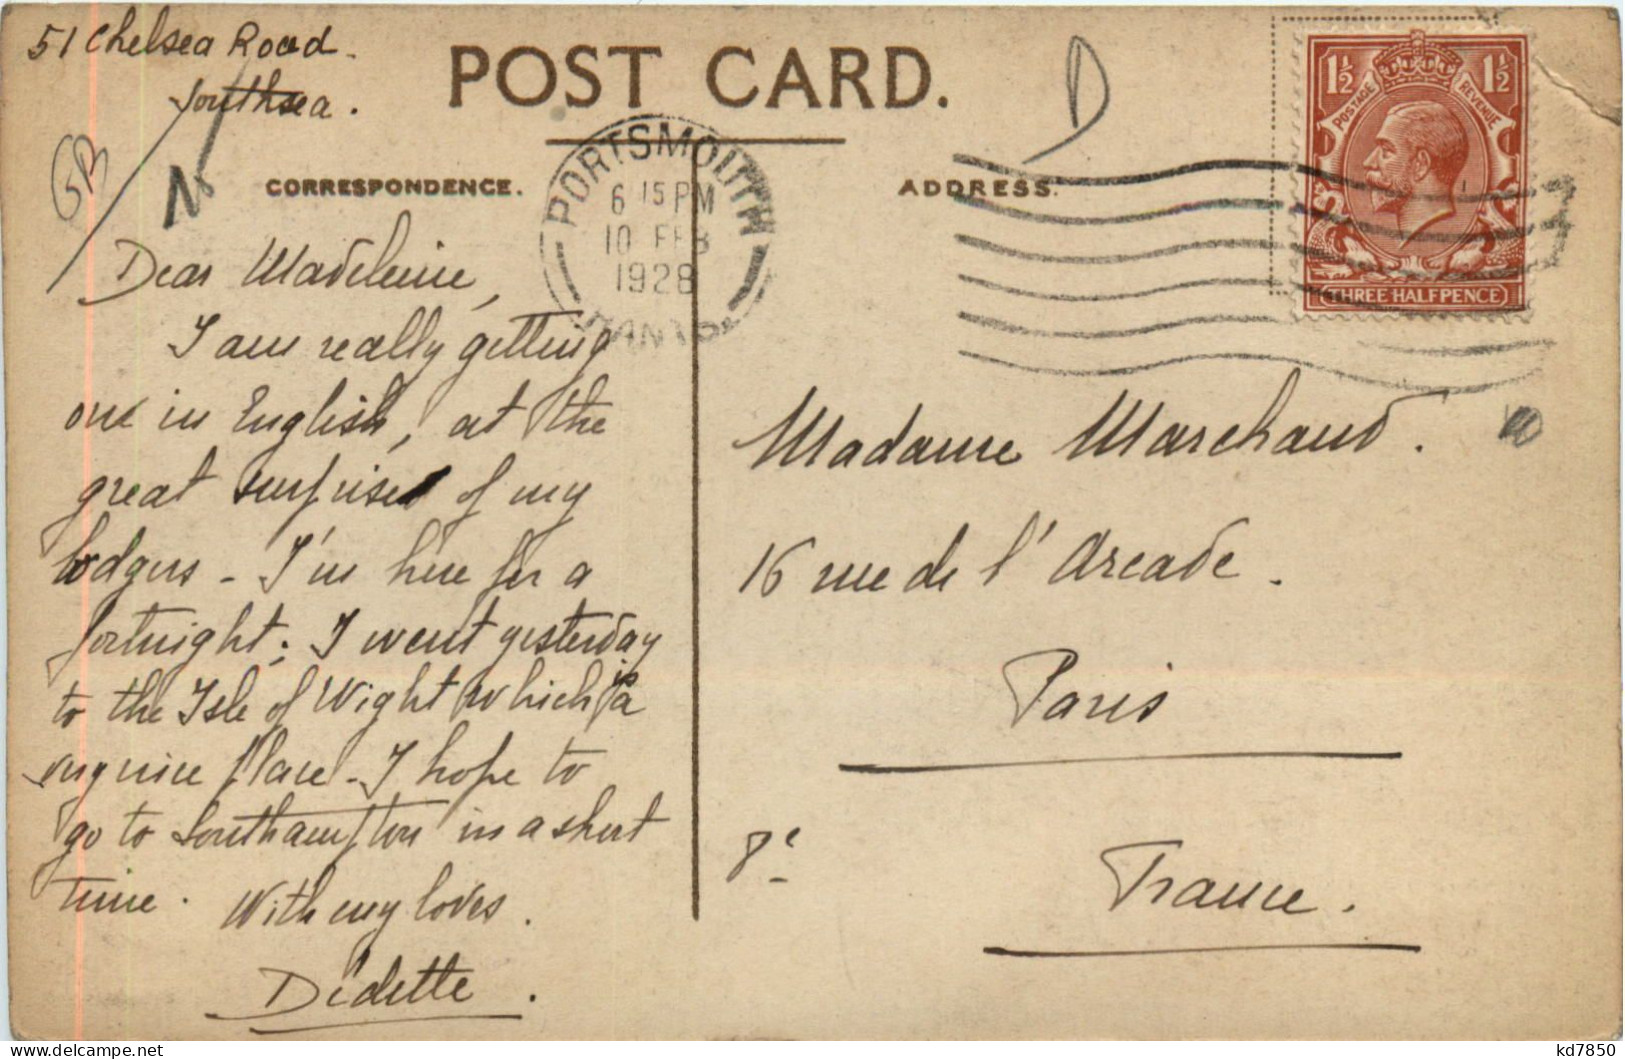 51 Chelsea Road.
Southsea.
POST CARD.
GB
N
D
CORRESPONDENCE.
ADDRESS.
PORTSMOUTH
6 15 PM
10 FEB
1928
HANTS.
1½ 1½
POSTAGE REVENUE
THREE HALFPENCE
Dear Madeleine,
I am really getting
one in English, at the
great surprise of my
lodgers - I'm here for a
fortnight; I went yesterday
to the Isle of Wight which is a
very nice place - I hope to
go to Southampton in a short
time. With my loves.
Dédette.
Madame Marchand.
16 rue de l'Arcade.
Paris
8e
France.
kd7850